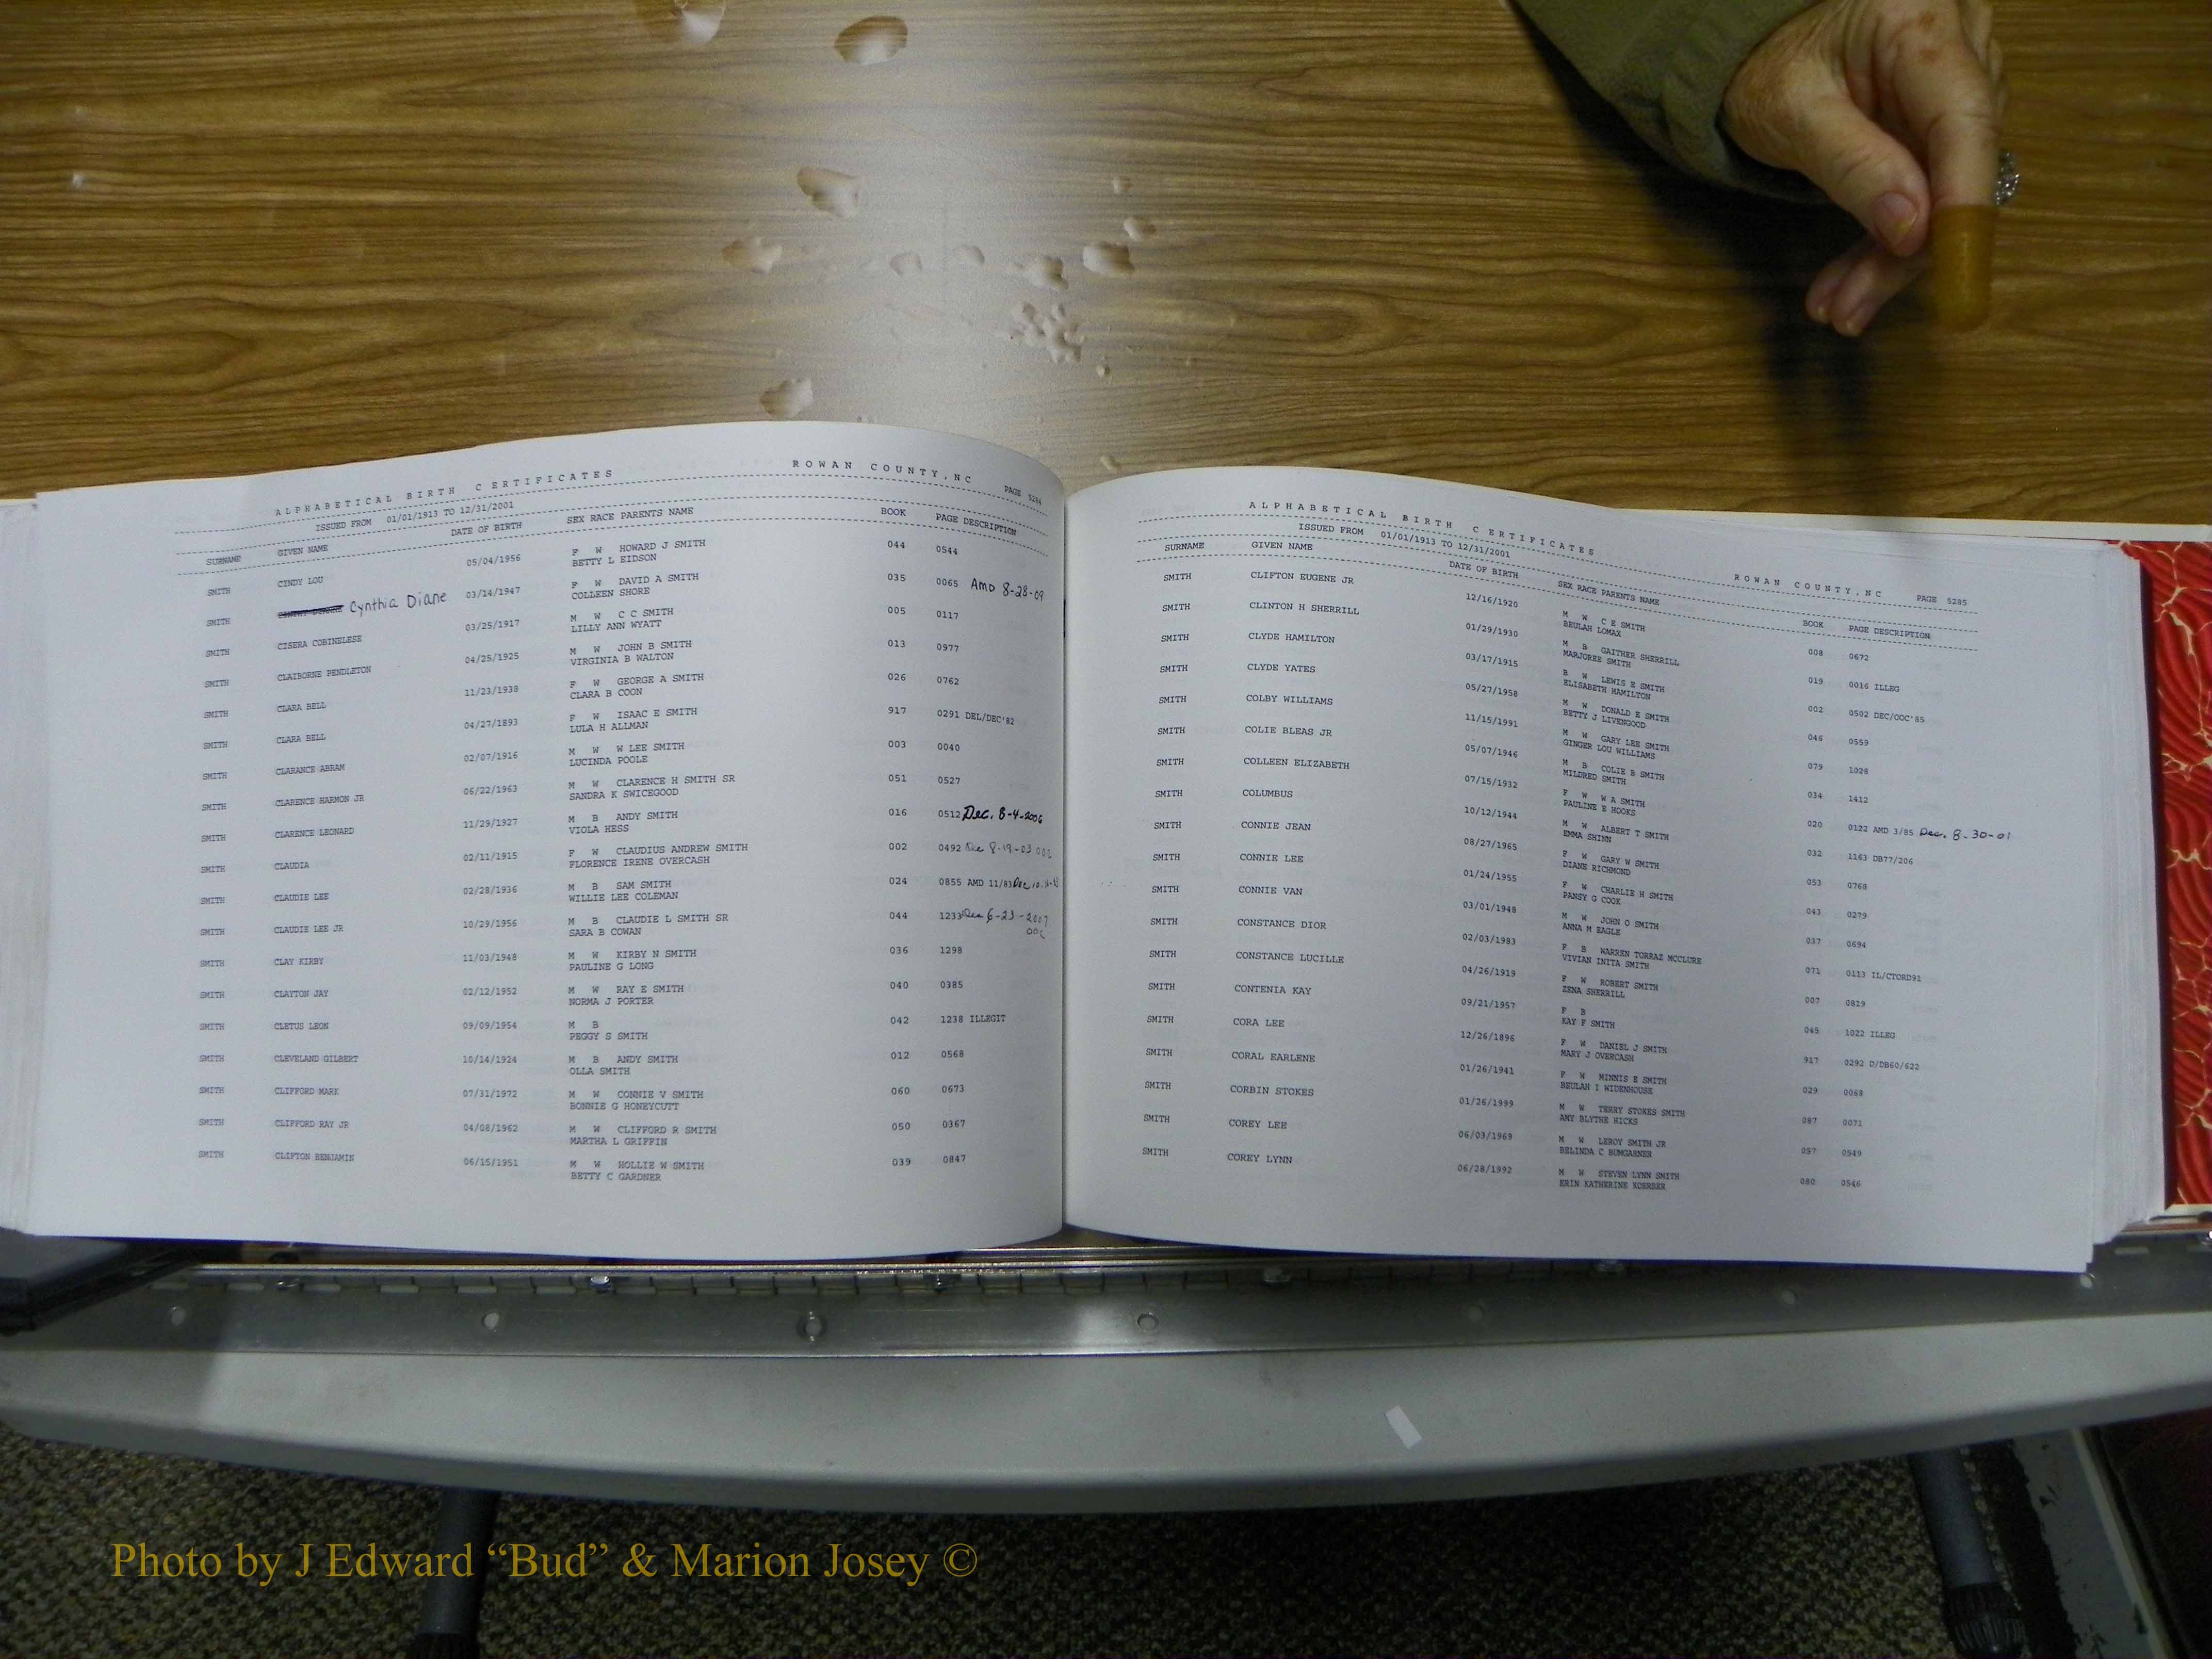 ALPHABETICAL BIRTH CERTIFICATES ROWAN COUNTY, NC PAGE 5284
ISSUED FROM 01/01/1913 TO 12/31/2001
SURNAME GIVEN NAME DATE OF BIRTH SEX RACE PARENTS NAME BOOK PAGE DESCRIPTION
SMITH CINDY LOU 05/04/1956 F W HOWARD J SMITH 044 0544
BETTY L EIDSON
SMITH Cynthia Diane 03/14/1947 F W DAVID A SMITH 035 0065 AMD 8-28-09
COLLEEN SHORE
SMITH CISERA COBINELESE 03/25/1917 M W C C SMITH 005 0117
LILLY ANN WYATT
SMITH CLAIBORNE PENDLETON 04/25/1925 M W JOHN B SMITH 013 0977
VIRGINIA B WALTON
SMITH CLARA BELL 11/23/1938 F W GEORGE A SMITH 026 0762
CLARA B COON
SMITH CLARA BELL 04/27/1893 F W ISAAC E SMITH 917 0291 DEL/DEC'82
LULA H ALLMAN
SMITH CLARANCE ABRAM 02/07/1916 M W W LEE SMITH 003 0040
LUCINDA POOLE
SMITH CLARENCE HARMON JR 06/22/1963 M W CLARENCE H SMITH SR 051 0527
SANDRA K SWICEGOOD
SMITH CLARENCE LEONARD 11/29/1927 M B ANDY SMITH 016 0512 Dec. 8-4-2006
VIOLA HESS
SMITH CLAUDIA 02/11/1915 F W CLAUDIUS ANDREW SMITH 002 0492 Dec 8-19-03
FLORENCE IRENE OVERCASH
SMITH CLAUDIE LEE 02/28/1936 M B SAM SMITH 024 0855 AMD 11/83 Dec
WILLIE LEE COLEMAN
SMITH CLAUDIE LEE JR 10/29/1956 M B CLAUDIE L SMITH SR 044 1233 Dec 6-23-2007
SARA B COWAN OOC
SMITH CLAY KIRBY 11/03/1948 M W KIRBY N SMITH 036 1298
PAULINE G LONG
SMITH CLAYTON JAY 02/12/1952 M W RAY E SMITH 040 0385
NORMA J PORTER
SMITH CLETUS LEON 09/09/1954 M B 042 1238 ILLEGIT
PEGGY S SMITH
SMITH CLEVELAND GILBERT 10/14/1924 M B ANDY SMITH 012 0568
OLLA SMITH
SMITH CLIFFORD MARK 07/31/1972 M W CONNIE V SMITH 060 0673
BONNIE G HONEYCUTT
SMITH CLIFFORD RAY JR 04/08/1962 M W CLIFFORD R SMITH 050 0367
MARTHA L GRIFFIN
SMITH CLIFTON BENJAMIN 06/15/1951 M W HOLLIE W SMITH 039 0847
BETTY C GARDNER
ALPHABETICAL BIRTH CERTIFICATES ROWAN COUNTY, NC PAGE 5285
ISSUED FROM 01/01/1913 TO 12/31/2001
SURNAME GIVEN NAME DATE OF BIRTH SEX RACE PARENTS NAME BOOK PAGE DESCRIPTION
SMITH CLIFTON EUGENE JR 12/16/1920 M W C E SMITH 008 0672
BEULAH LOMAX
SMITH CLINTON H SHERRILL 01/29/1930 M B GAITHER SHERRILL 019 0016 ILLEG
MARJOREE SMITH
SMITH CLYDE HAMILTON 03/17/1915 B W LEWIS E SMITH 002 0502 DEC/OOC'85
ELISABETH HAMILTON
SMITH CLYDE YATES 05/27/1958 M W DONALD E SMITH 046 0559
BETTY J LIVENGOOD
SMITH COLBY WILLIAMS 11/15/1991 M W GARY LEE SMITH 079 1028
GINGER LOU WILLIAMS
SMITH COLIE BLEAS JR 05/07/1946 M B COLIE B SMITH 034 1412
MILDRED SMITH
SMITH COLLEEN ELIZABETH 07/15/1932 F W W A SMITH 020 0122 AMD 3/85 Dec. 8-30-01
PAULINE E HOOKS
SMITH COLUMBUS 10/12/1944 M W ALBERT T SMITH 032 1163 DB77/206
EMMA SHINN
SMITH CONNIE JEAN 08/27/1965 F W GARY W SMITH 053 0768
DIANE RICHMOND
SMITH CONNIE LEE 01/24/1955 F W CHARLIE H SMITH 043 0279
PANSY G COOK
SMITH CONNIE VAN 03/01/1948 M W JOHN O SMITH 037 0694
ANNA M EAGLE
SMITH CONSTANCE DIOR 02/03/1983 F B WARREN TORRAZ MCCLURE 071 0113 IL/CTORD91
VIVIAN INITA SMITH
SMITH CONSTANCE LUCILLE 04/26/1919 F W ROBERT SMITH 007 0819
ZENA SHERRILL
SMITH CONTENIA KAY 09/21/1957 F B 045 1022 ILLEG
KAY F SMITH
SMITH CORA LEE 12/26/1896 F W DANIEL J SMITH 917 0292 D/DB60/622
MARY J OVERCASH
SMITH CORAL EARLENE 01/26/1941 F W MINNIS E SMITH 029 0068
BEULAH I WIDENHOUSE
SMITH CORBIN STOKES 01/26/1999 M W TERRY STOKES SMITH 087 0071
AMY BLYTHE HICKS
SMITH COREY LEE 06/03/1969 M W LEROY SMITH JR 057 0549
BELINDA C BUMGARNER
SMITH COREY LYNN 06/28/1992 M W STEVEN LYNN SMITH 080 0546
ERIN KATHERINE KOERBER
Photo by J Edward “Bud” & Marion Josey ©